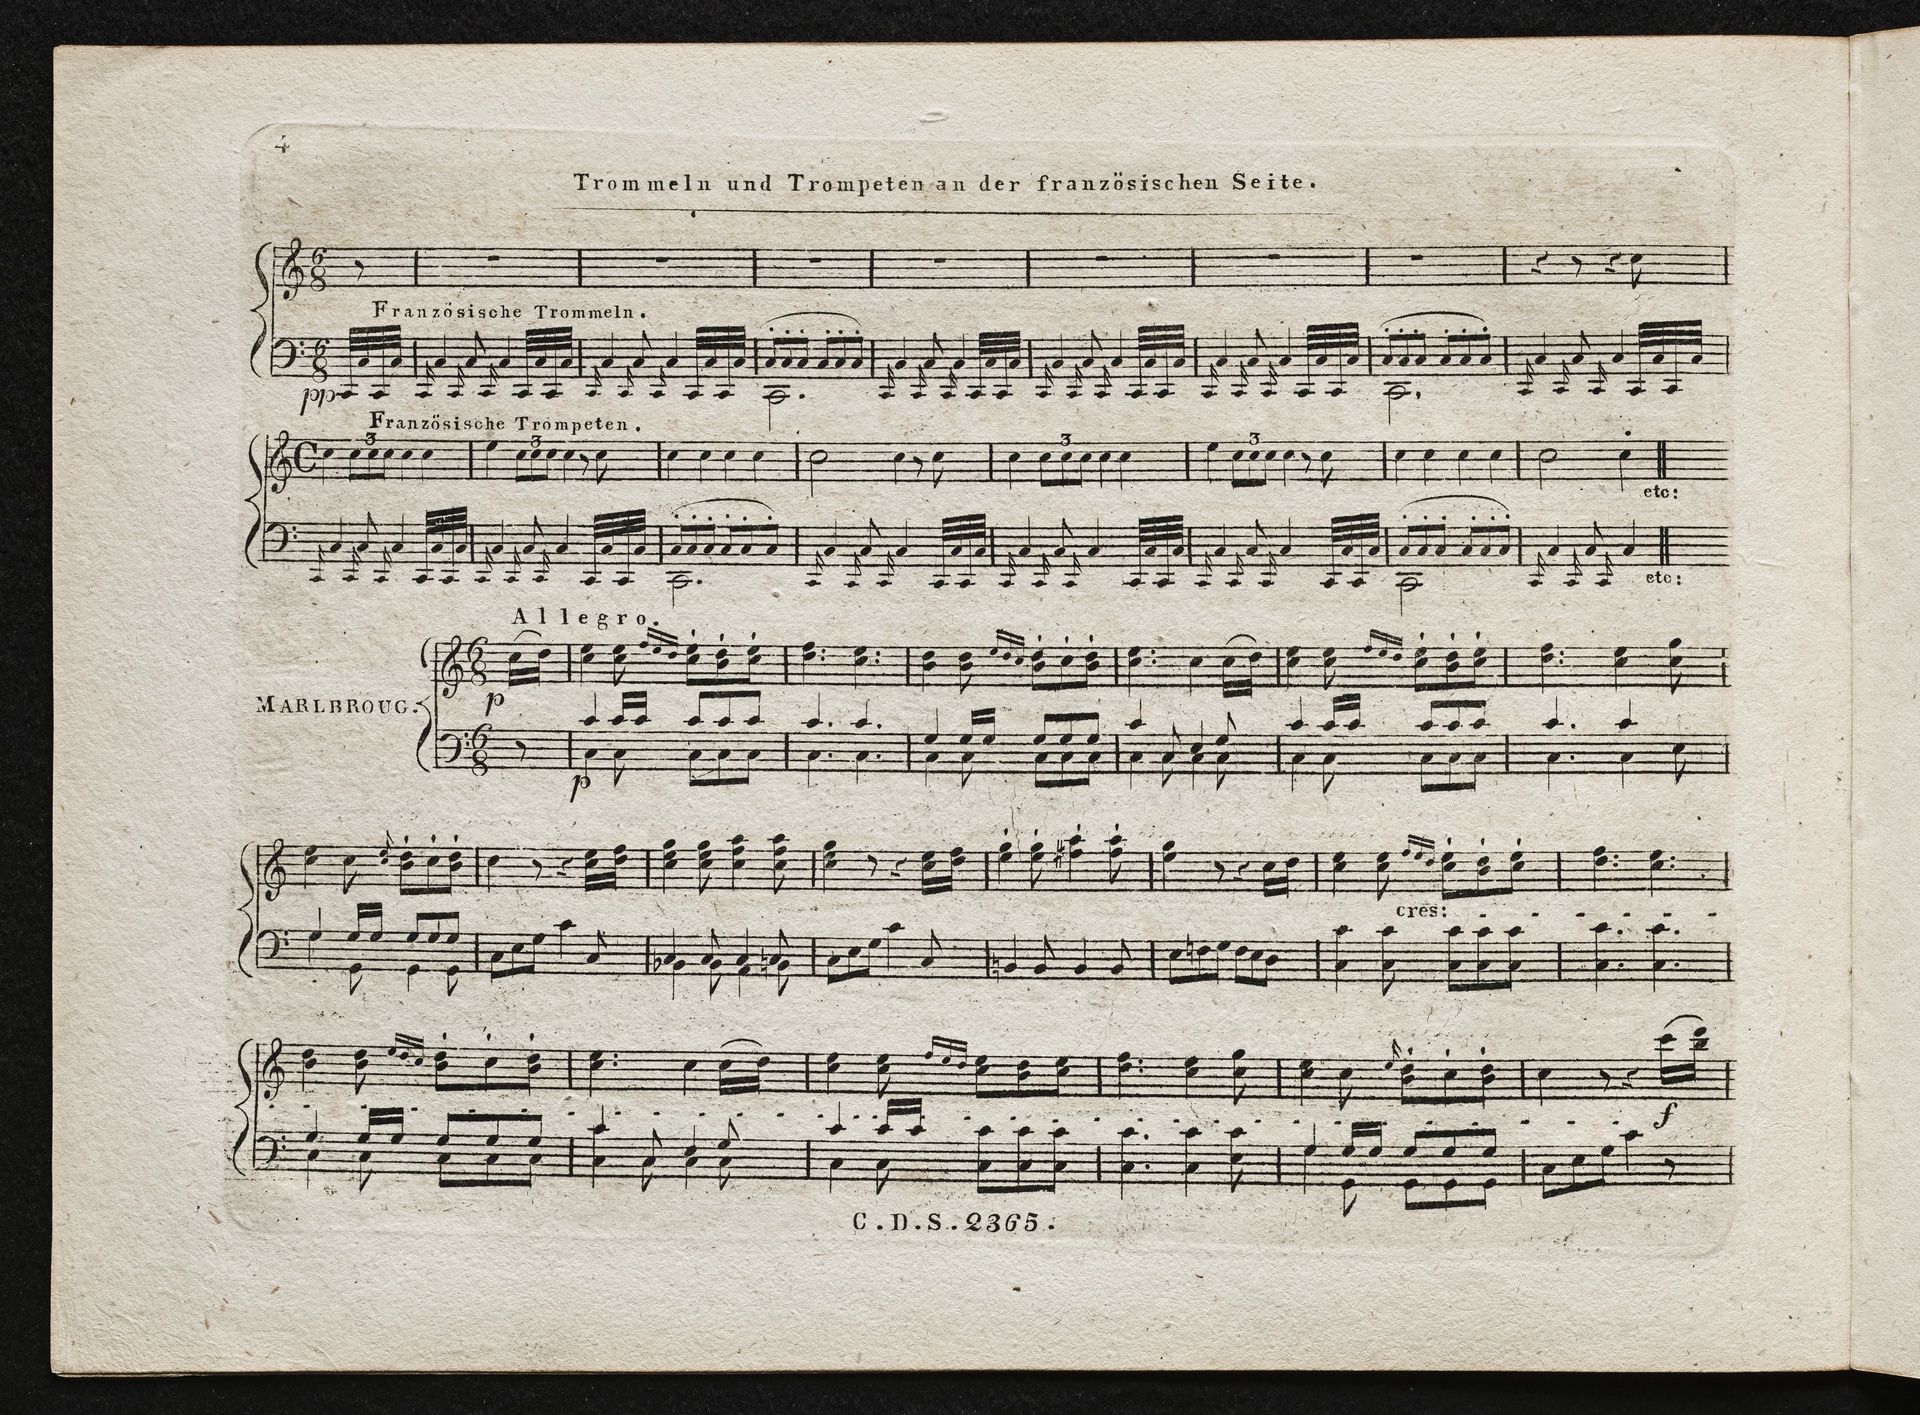 4
Trommeln und Trompeten an der französischen Seite.
Französische Trommeln.
pp
Französische Trompeten.
3 3 3 3
etc:
etc:
Allegro.
p
MARLBROUG.
p
cres:
f
C.D.S.2365.